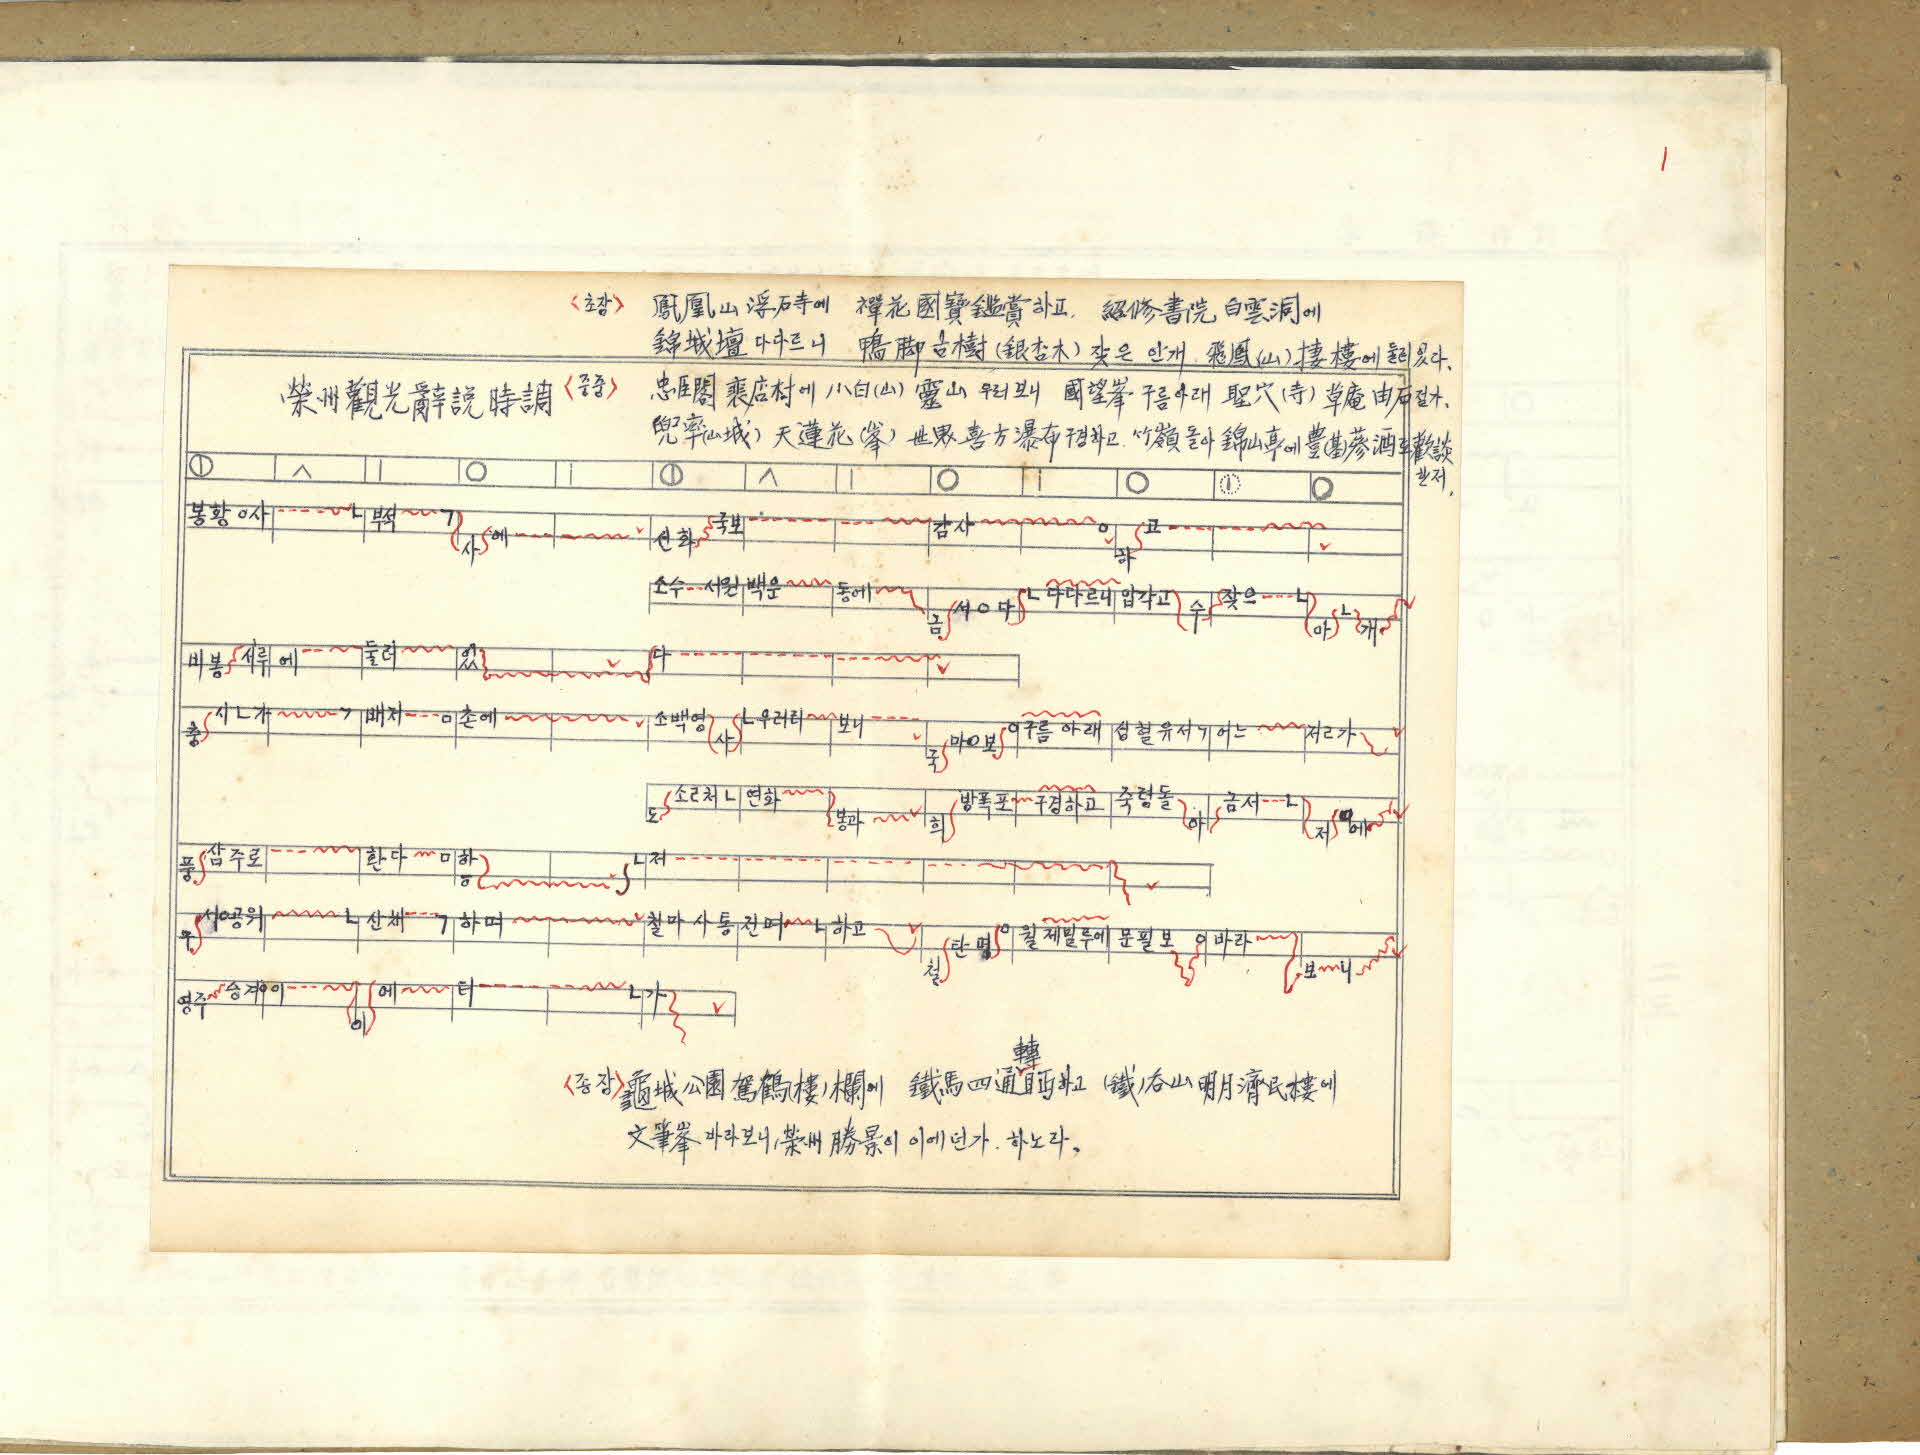 1
〈초장〉 鳳凰山 浮石寺에 禪花國寶鑑賞하고, 紹修書院 白雲洞에
錦城壇 다다르니 鴨脚古樹(銀杏木) 잦은 안개 飛鳳(山) 捿樓에 둘러있다.
榮州觀光辭說時調
〈중중〉 忠臣閣 裵店村에 小白(山) 靈山 우러보니 國望峯 구름아래 聖穴(寺) 草庵 由石절가,
兜率(山城) 天蓮花(峯) 世界 喜方瀑布구경하고, 竹嶺 돌아 錦山亭에 豊(基)蔘酒로 歡談
한저,
봉황 ㅇ사 ㄴ 부석 ㄱ 사 에 선화 국보 감사 ㅇ 하 고
소수 서원 백운 동에 금 서 ㅇ 다 ㄴ 다다르니 압각고 수 잦으 ㄴ 마 ㄴ 개
비봉 서루 에 둘러 있 다
충 시ㄴ가 ㄱ 배저 ㅁ 촌에 소백영 사 ㄴ우러러 보니 국 마ㅇ보 ㅇ구름 아래 섬혈유서ㄱ 어느 저ㄹ가
도 소ㄹ처ㄴ 연화 봉과 희 방폭포 구경하고 죽령돌 아 금서 ㄴ 저 에
풍 삼주로 환다 ㅁ 하 ㄴ저
구 서ㅇ공위 ㄴ 산채 ㄱ 하며 철마사통 전며 ㄴ 하고 철 탄명 ㅇ 월제밀루에 문필보 ㅇ 바라 보 니
영주 승겨ㅇ이 이 에 터 ㄴ 가
轉
〈종장〉 龜城公園 駕鶴(樓)欄에 鐵馬四通 하고 (鐵)呑山 明月 濟民樓에
文筆峯 바라보니, 榮州 勝景이 이에던가. 하노라.